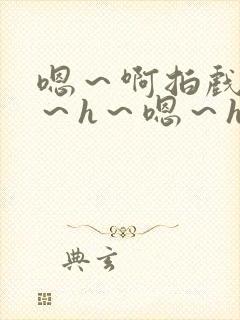 嗯～啊拍戏
～h～嗯～h
典玄